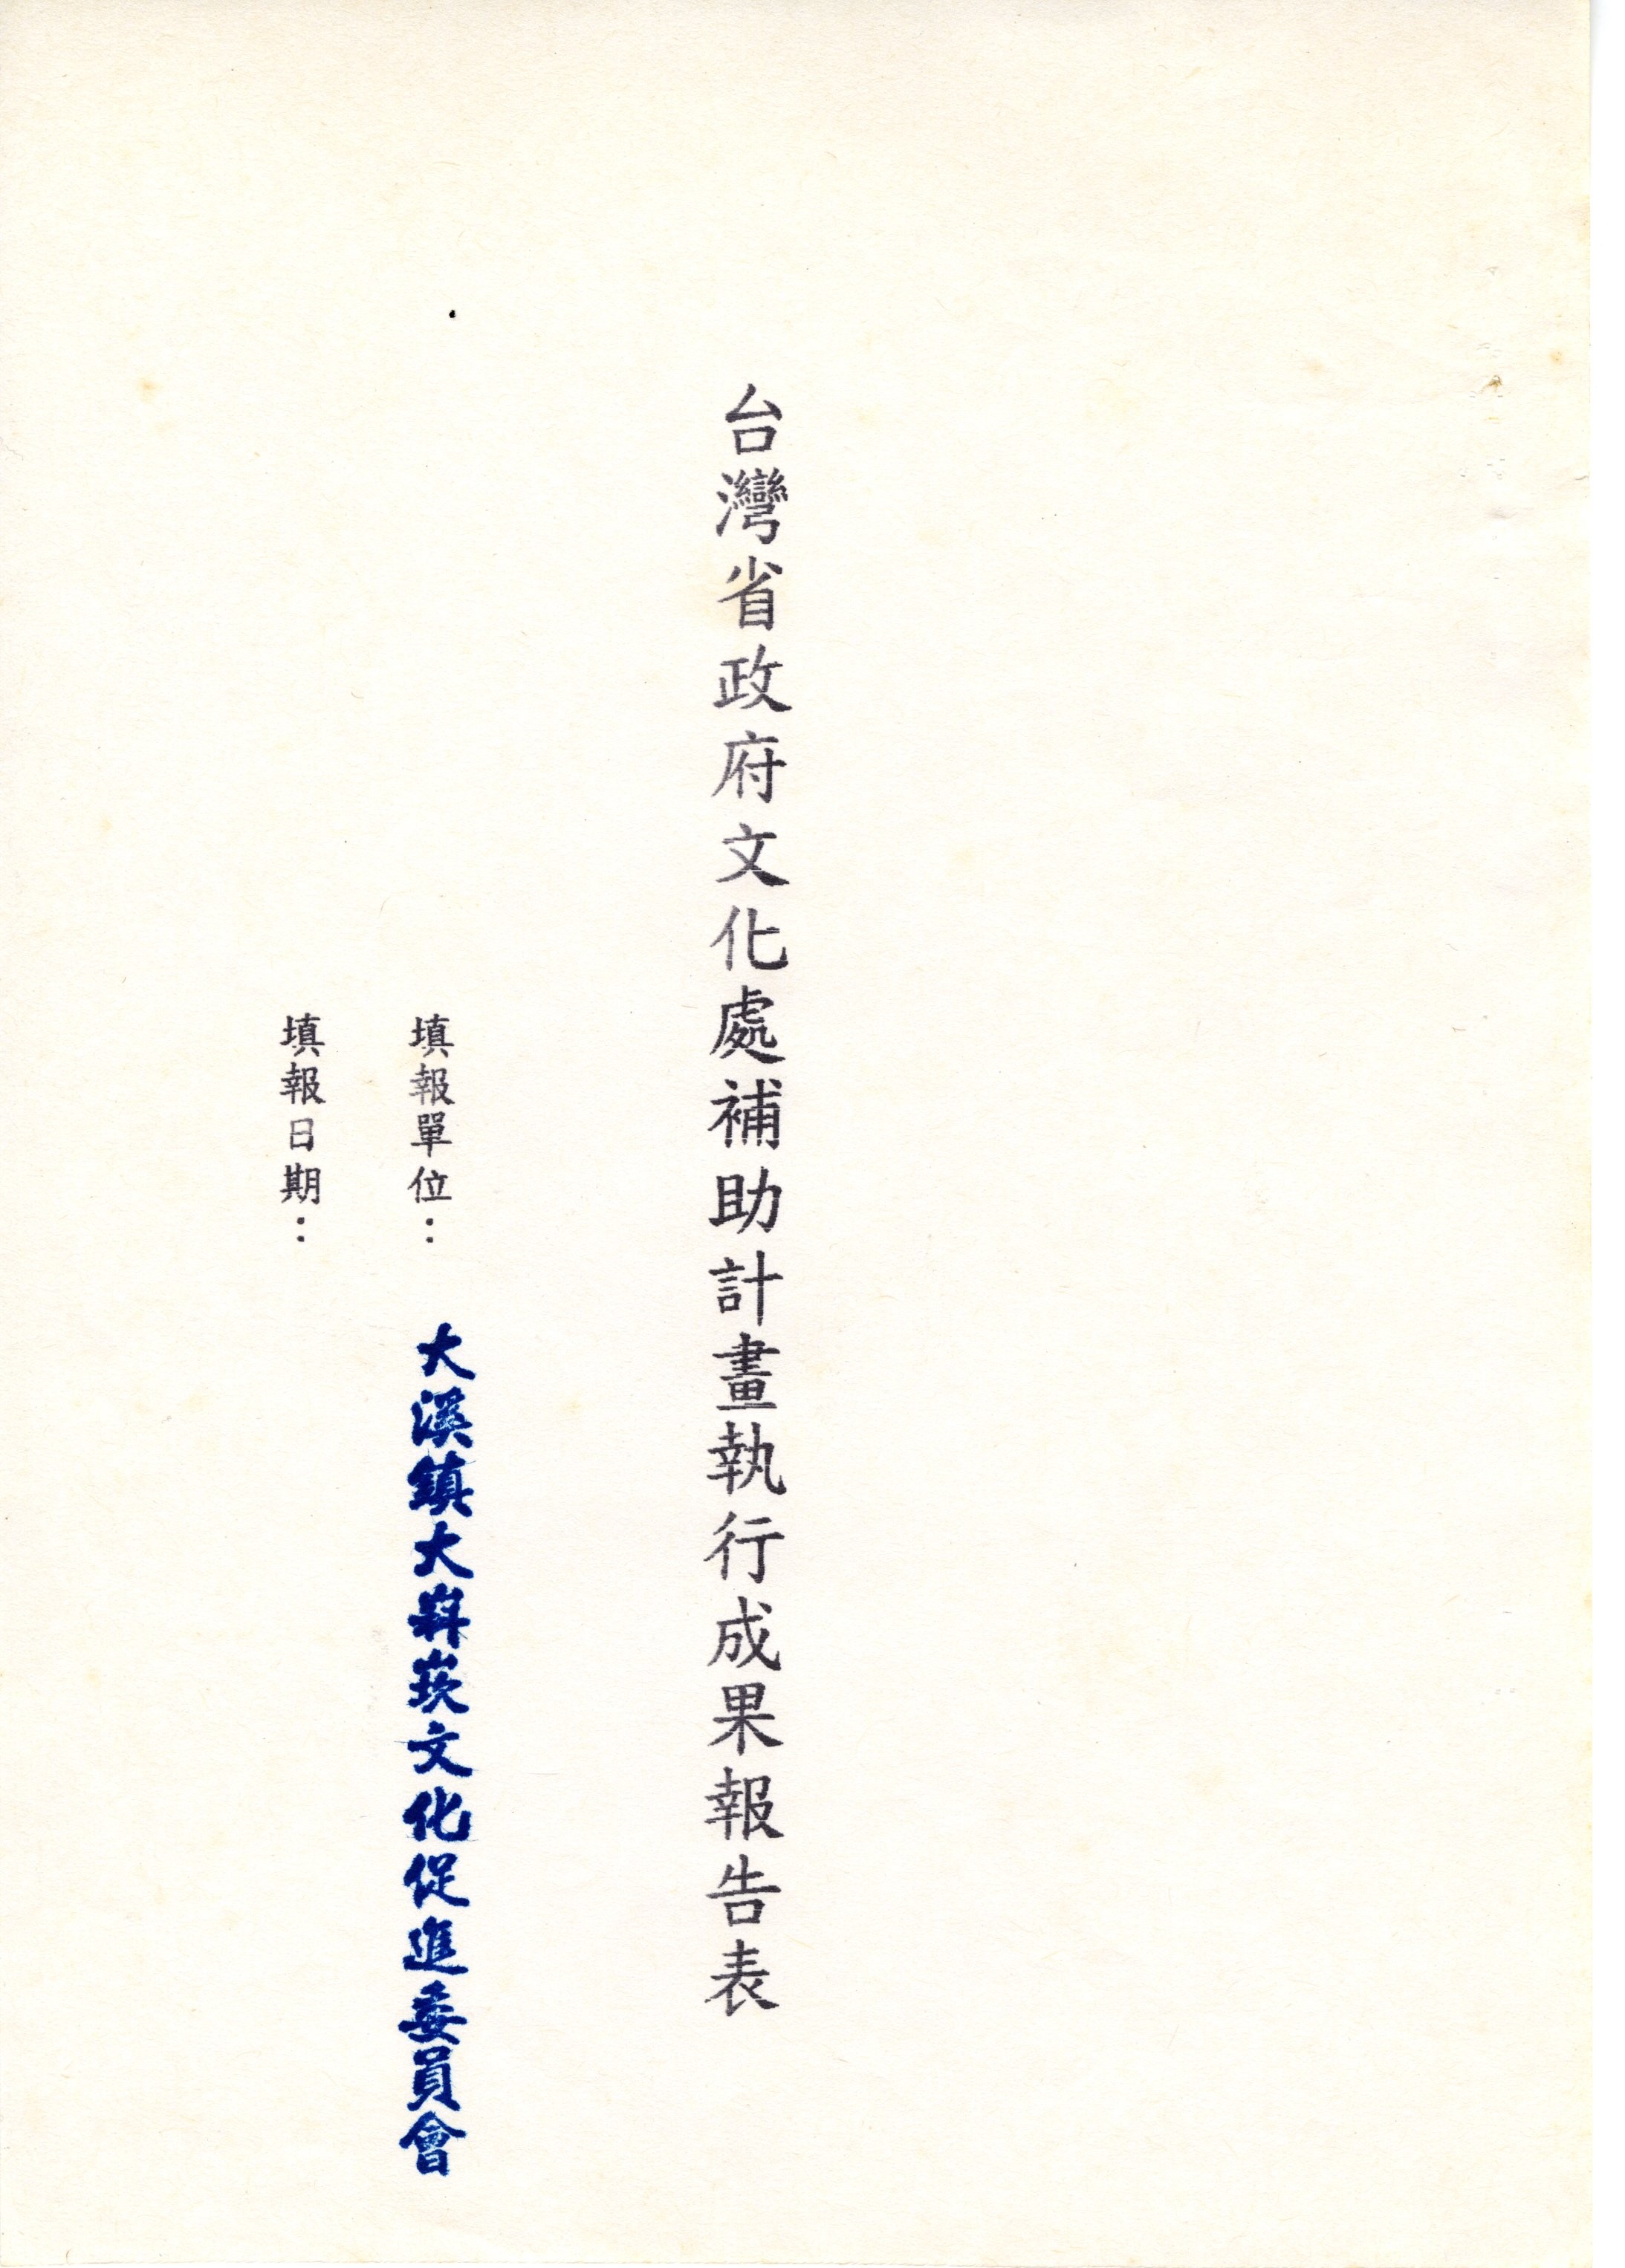 台灣省政府文化處補助計畫執行成果報告表
填報單位：大溪鎮大嵙崁文化促進委員會
填報日期：